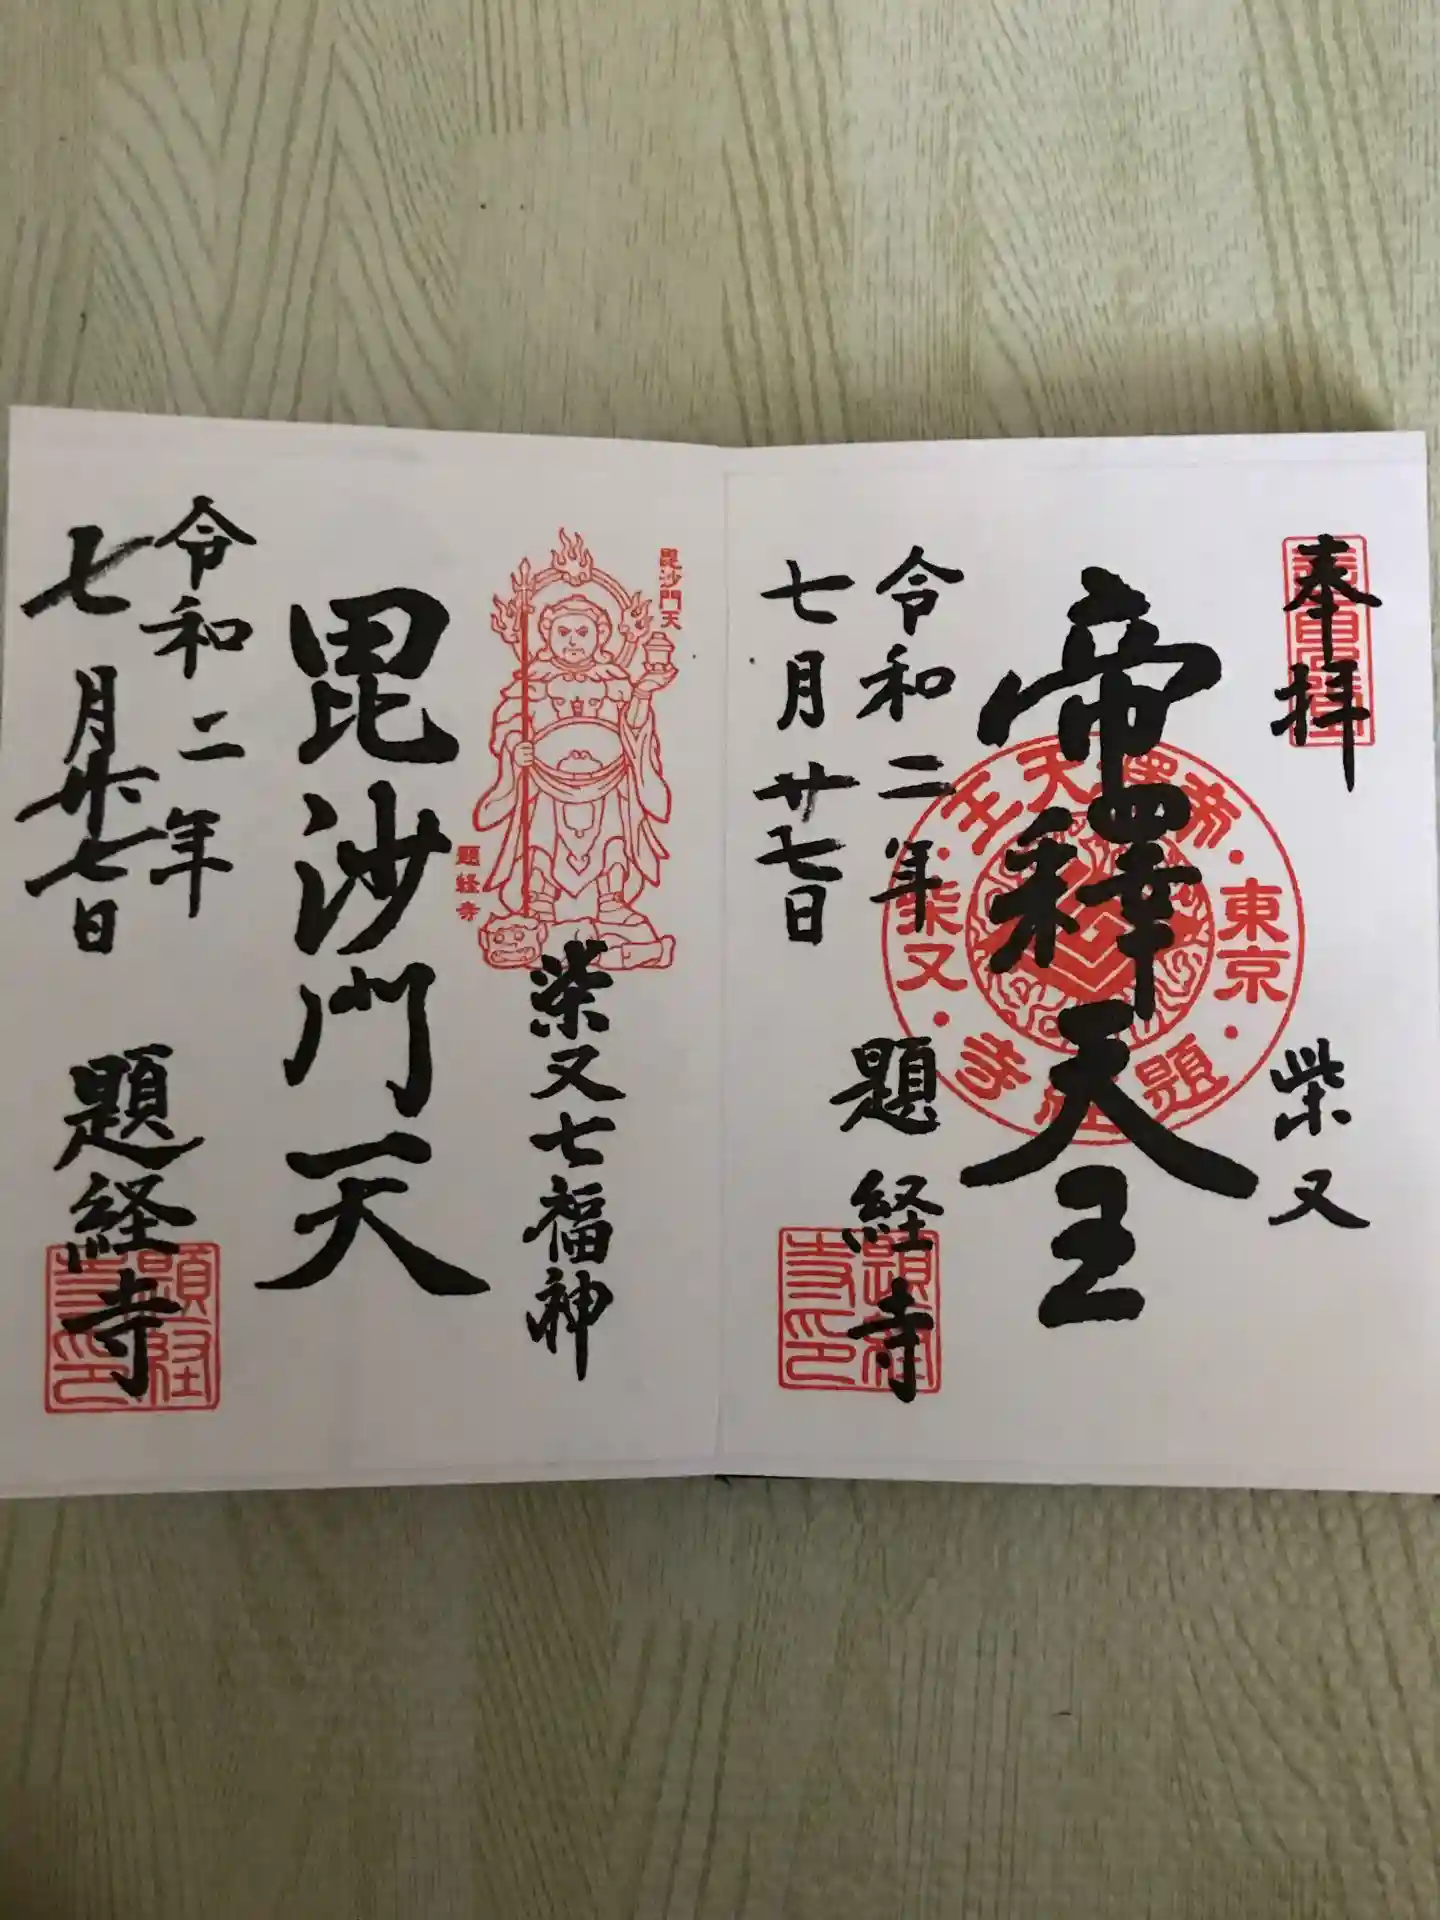 奉拝
柴又
帝釋天王
東京
柴又
題経寺
帝釋天王
令和二年
七月廿七日
題経寺
題経寺印
毘沙門天
題経寺
柴又七福神
毘沙門天
令和二年
七月廿七日
題経寺
題経寺印